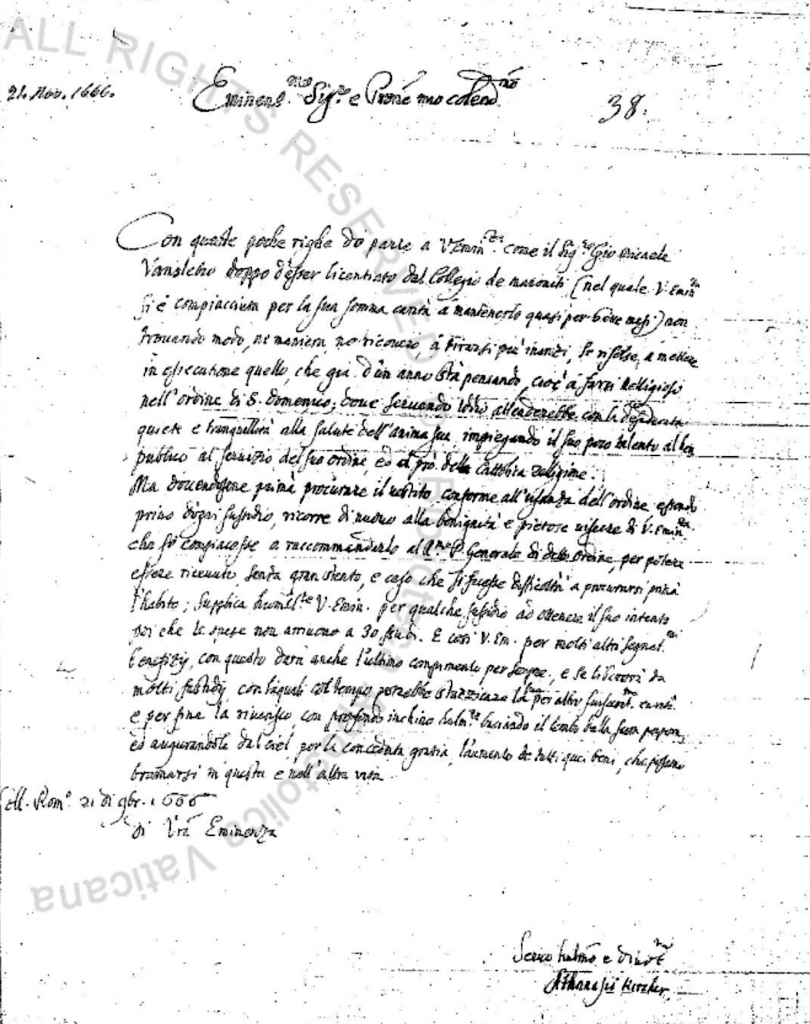 21. Nov. 1666.
Eminens.mo Sig.re e Prone mio colend.mo
38.
Con queste poche righe dò parte a V. Emin.za come il Sig.re Gio Michele
Vanslebio doppo d'esser licentiato dal Collegio de maroniti (nel quale V. Emin.za
si è compiacciuta per la sua somma carità a mantenerlo quasi per mesi) non
trouando modo, ne maniera, ne ricouero á tirarsi più inanzi, si risolse, a mettere
in essecutione quello, che già d'un anno stà pensando, cioè á farsi Religioso
nell'ordine di S. Domenico; doue seruendo Iddio attenderebbe con la desiderata
quiete e tranquillità alla salute dell'anima sua, impiegando il suo poco talento al ben
publico al seruizio del suo ordine ed al prò della Cattolica religione.
Ma douendosene prima procurare il uestito conforme all'usanza dell'ordine essendo
priuo d'ogni sussidio, ricorre di nuouo alla benignità e pietose uiscere di V. Emin.za
che si compiacesse a raccommandarlo al R.mo P. Generale di detto ordine, per potere
essere riceuuto senza gran stento, e caso che si facesse difficoltà a procurarsi prima
l'habito; supplica humil.te V. Emin. per qualche sussidio ad ottenere il suo intento
poi che le spese non arriuono a 30 scudi. E così V. Em. per molti altri segnal.ti
beneficij, con questo darà anche l'ultimo compimento per sempre, e se libererà da
molti fastidij, con li quali col tempo potrebbe stuzzicare la per altro carità.
e per fine la riuerisco con profondo inchino hulm.te baciando il lembo della sacra porpora,
ed augurandole dal ciel, per la conceduta gratia, l'aumento de tutti quei beni, che possono
bramarsi in questa e nell'altra uita.
Coll. Rom.o 21 di 9br. 1666
di Vra Eminenza
Seruo hulmo e diuot.mo
Athanasius Kircher
ALL RIGHTS RESERVED
Biblioteca Apostolica Vaticana